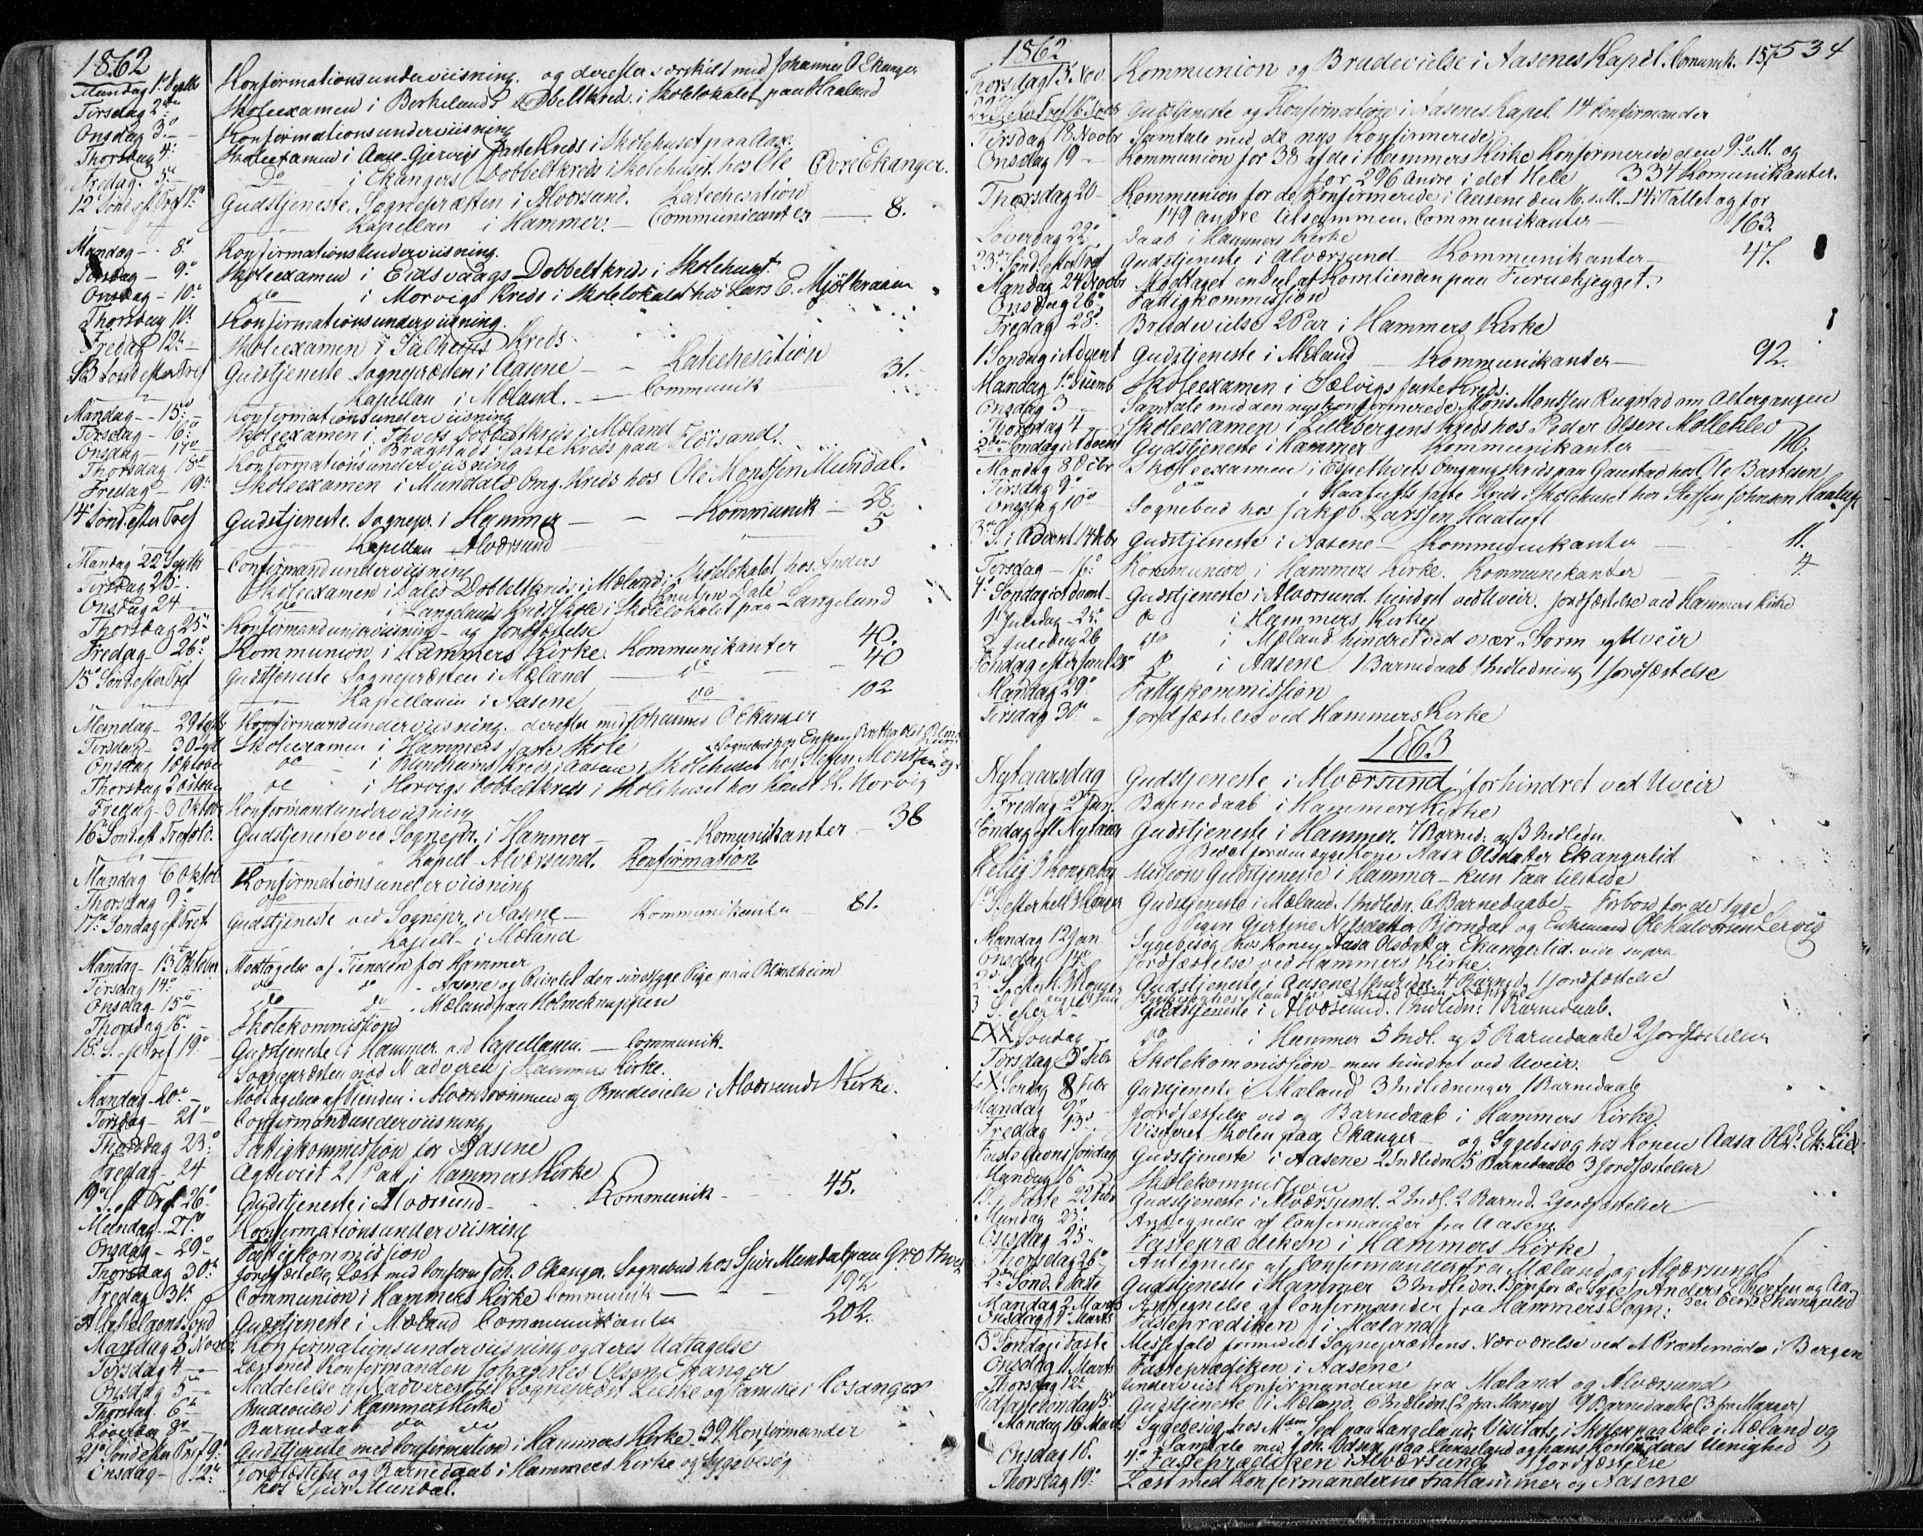 1862
Mandag 1e Septbr Konfirmationsunderviisning. og derefter særskilt med Johannes O Ekanger
Tirsdag 2den Skoleexamen i Berkelands Dobbeltkreds i Skolelokalet paa Haaland
Onsdag 3o Konfirmationsunderviisning
Thorsdag 4o Skoleexamen i Aase-Gjervigs faste Kreds i Skolehuset paa Aase.
Fredag 5o do i Ekangers Dobbeltkreds i Skolehuset hos Ole Øvre Ekanger.
12 Sønd. eft Tref 7de Gudstjeneste. Sognepræsten i Alværsund. Katechesation
Kapellan i Hammer. Communicanter 8.
Mandag 8o Konfirmationsunderviisning
Tirsdag 9o Skoleexamen i Eidsvaags Dobbeltkreds i Skolehuset.
Onsdag 10o do i Morvigs Kreds i Skolelokalet hos Lars E. Mjölkeraaen
Thorsdag 11o Konfirmationsunderviisning.
Fredag 12te Skoleexamen i Salhuus Kreds.
13 Sond efter Tref Gudstjeneste Sognepræsten i Aasene Katechesation
Kapellan i Mæland. Communik 31.
Mandag 15o Konfirmationsunderviisning
Tirsdag 16o Skoleexamen i Dobbeltkreds i Mæland
Onsdag 17o do i Bragstads Faste Kreds paa Flöisand.
Thorsdag 18o Konfirmationsunderviisning
Fredag 19o Skoleexamen i Mundals Omg. Kreds hos Ole Monssen Mundal.
14 Sønd. efter Tref Gudstjeneste Sognepr. i Hammer Kommunik 28
Kapellan Alværsund 5
Mandag 22 Septbr Confirmandunderviisning
Tirsdag 23 Skoleexamen i Dales Dobbeltkreds i Mæland i Skolelokalet hos Anders Knutsen Dale
Onsdag 24 do i Langelands Kredsskole i Skolelokalet paa Langeland
Thorsdag 25o Konfirmandunderviisning og Jordfæstelse
Fredag 26o Kommunion i Hammers Kirke. Kommunikanter 40.
15 Sønd. efter Tref Gudstjeneste Sognepræsten i Mæland do 40
Kapellanen i Aasene do 102
Mandag 29 Sptb Konfirmandunderviisning. derefter med Johannes O Ekanger
Tirsdag 30 Spt Skoleexamen i Hammers faste Skole
Onsdag 1 Oktober do i Rundheims Kreds i Aasene i Skolehuset hos Steffen Montsen
Thorsdag 2 Oktbr do i Horvigs Dobbeltkreds i Skolehuset hos Knud L. Morvig
Fredag 3 Oktbr Konfirmandunderviisning
16 Sond. eft Tref 5 Oct. Gudstjeneste ved Sognepr. i Hammer Komunikanter 38
Kapell Alværsund. Konfirmation
Mandag 6 Oktob Konfirmationsunderviisning
Thorsdag 9o do
17 Søndag eft Tref Gudstjeneste ved Sognepr. i Aasene Kommunikanter 81.
Kapell i Mæland
Mandag 13 Oktober Modtagelse af Tienden for Hammer
Tirsdag 14o do do Aasene og Besøgt den sindsyge Pige paa Blindheim
Onsdag 15o do do Mæland paa Holmeknappen
Thorsdag 16o Skolekommission
18 S. eft Tref 19o Gudstjeneste i Hammer ved Capellanen. Communik.
Sognepræsten med Nadveren i Hammers Kirke.
Mandag 20o Modtagelse af Tienden i Alværströmmen og Brudevielse i Alværsunds Kirke.
Tirsdag 21o Confirmandunderviisning
Thorsdag 23o Fattigkommission for Aasene
Fredag 24 Ægteviet 2 Par i Hammers Kirke
19 S. eft Tref 26o Gudstjeneste i Alværsund Kommunik 45.
Mandag 27o Konfirmationsunderviisning
Onsdag 29o Fattigkommission
Thorsdag 30o Jordfæstelse, Læst med Confirm Joh. O Ekanger. Sognebud hos Sjur Mundal paa Gro
Fredag 31te Communion i Hammers Kirke Communik 192
Allehelgens Sønd Gudstjeneste i Mæland Communikanter 202.
Mandag 3 Novbr Konfirmationsunderviisning og deres Udtagelse
Tirsdag 4 Læst med Konfirmanden Johannes Olsen Ekanger
Onsdag 5 Meddelelse af Nadveren til Sognepræst Lilske og Familie i Hosanger
Thorsdag 6o Brudevielse i Hammers Kirke
Løverdag 8o Barnedaab do do
21 Sønd efter Tref 9o Gudstjeneste med Confirmation i Hammers Kirke. 39 Konfirmander
Onsdag 12te Jordfæstelse og Barnedaab i Hammers Kirke og Sygebesøg
hos Sjur Mundal.
1862 534
Torsdag 13 Nov Kommunion og Brudevielse i Aasenes Kapel. Komunik. 157
22 S. efter Tref 16 Novbr Gudstjeneste og Konfirmation i Aasenes Kapel. 14 Confirmander
Tirsdag 18 Novbr Samtale med de nys Konfirmerede
Onsdag 19 Kommunion for 38 af de i Hammers Kirke Konfirmerede den 9o s.M. og
for 296 Andre i det Hele 334 Komunikanter.
Thorsdag 20 Kommunion for de Konfirmerede i Aasene den 16. s.M. 14 i Tallet og for
149 andre tilsammen Communikanter 163.
Løverdag 22o Daab i Hammers Kirke
23 Sønd. efter Tref Gudstjeneste i Alværsund Kommunikanter 47.
Mandag 24 Novbr Modtaget en Del af Korntienden paa Fieruskjægget.
Onsdag 26o Fattigkommission
Fredag 28o Brudevielse 2 Par i Hammers Kirke
1 Søndag i Advent Gudstjeneste i Mæland Kommunikanter 92.
Mandag 1 Decmb Skoleexamen i Sælvigs faste Kreds.
Onsdag 3 Samtale med den nyskonfirmerede Mons Monssen Rugstad om Altergangen
Thorsdag 4 Skoleexamen i Lillebergens Kreds hos Peder Olsen Mollekleiv
2den Søndag i Advent Gudstjeneste i Hammer Kommunikanter 16.
Mandag 8 Decbr Skoleexamen i Espethvets Omgangskreds paa Gaustad hos Ole Bartsen
Tirsdag 9o do i Haatufts faste Kreds i Skolehuset hos Steffen Johnsen Haatuft
Onsdag 10o Sognebud hos Jakob Larssen Haatuft
3 S. i Advent 14 Dbr Gudstjeneste i Aasene Kommunikanter 11.
Torsdag Kommunion i Hammers Kirke. Kommunikanter 4.
4 Søndag i Advent Gudstjeneste i Alværsund hindret ved Uveir. Jordfæstelse ved Hammers Kirke
1 Juledag 25 do i Hammers Kirke
2 Juledag 26 do i Mæland hindret ved svær Storm og Uveir
Søndag efter Juul 28 do i Aasene 1 Barnedaab 1 Indledning 1 Jordfæstelse
Mandag 29o Fattigkommission
Tirsdag 30o Jordfæstelse ved Hammers Kirke
1863
Nytaarsdag Gudstjeneste i Alværsund forhindret ved Uveir
Fredag 2 Jan Barnedaab i Hammers Kirke
Søndag eft Nytaar Gudstjeneste i Hammer. 7 Barned. og 3 Indledn.
Bedet for den syge Kone Aasa Olsdatter Ekangerlid
Hellig 3 Kongersdag Missions Gudstjeneste i Hammer kun faa tilstede
1 S. efter hell 3 Konger Gudstjeneste i Mæland. 1 Indledn. 6 Barnedaabe Forbøn for de syge
Pigen Gjertine Nilsdatter Bjørndal og Enkemand Ole Halvorsen Lervig
Mandag 12 Jan Sygebesøg hos Konen Aasa Olsdatter Ekangerlid. vide supra
Onsdag 14o Jordfæstelse ved Hammers Kirke.
2 S. eft. H. 3 Konger Gudstjeneste i Aasene 1 Indledn. 4 Barned. 1 Jordfæstelse
3 S. efter Gudstjeneste i Alværsund. 1 Indledn. 1 Barnedaab.
LXX Søndag do i Hammer 5 Indl. og 5 Barnedaabe 2 Jordfæstelser
Tirsdag 3 Febr Skolekommission men hindret ved Uveir.
LX Søndag 8 Febr Gudstjeneste i Mæland 3 Indledninger 1 Barnedaab
Mandag 9o Jordfæstelse ved og Barnedaab i Hammers Kirke
Fredag 13o Visiteret Skolen paa Ekanger og Sygebesøg hos Konen Aasa Olsdr. Ek. Lid.
Fastelavns Søndag Gudstjeneste i Aasene 2 Indledn. 5 Barnedaabe 3 Jordfæstelser
Mandag 16 Skolekommission
1 S. i Faste 22 Febr Gudstjeneste i Alværsund. 2 Indl. 2 Barned. 2 Jordfæstelser
Mandag 23o Antegnelse af Confirmander fra Aasene
Onsdag 25 Fasteprædiken i Hammers Kirke
Thorsdag 26o Antegnelse af Confirmander fra Mæland og Alværsund
2den Sønd. i Faste Gudstjeneste i Hammer 3 Indledn. Bøn for de Syge: Anders Sjursen og Aa-
sa Olsdr Ekangerlid
Mandag 2 Marts Antegnelse af Confirmander fra Hammers Sogn.
Onsdag 4 Marts Fasteprædiken i Mæland
3 Søndag i Faste Messefald formedelst Sognepræstens Nærværelse ved et Præstemøde i Bergen
Onsdag 11 Marts Fasteprædiken i Aasene
Thorsdag 12te Underviist Konfirmanderne fra Mæland og Alværsund
Midfastesøndag 15o Gudstjeneste i Mæland. 6 Indledn. (2 fra Manger) 9 Barnedaabe (3 fra Manger)
Mandag 16 Marts Sygebesøg hos Mdm Sed paa Langeland, Visitats i Skolen paa Dale i Mæland og
Samtale med Joh. Odsen paa Langeland og hans Kone deres Uenighed
Onsdag 18. 4o Fasteprædiken i Alværsund 1 Jordfæstelse
Thorsdag 19o Læst med Konfirmanderne fra Hammer og Aasene